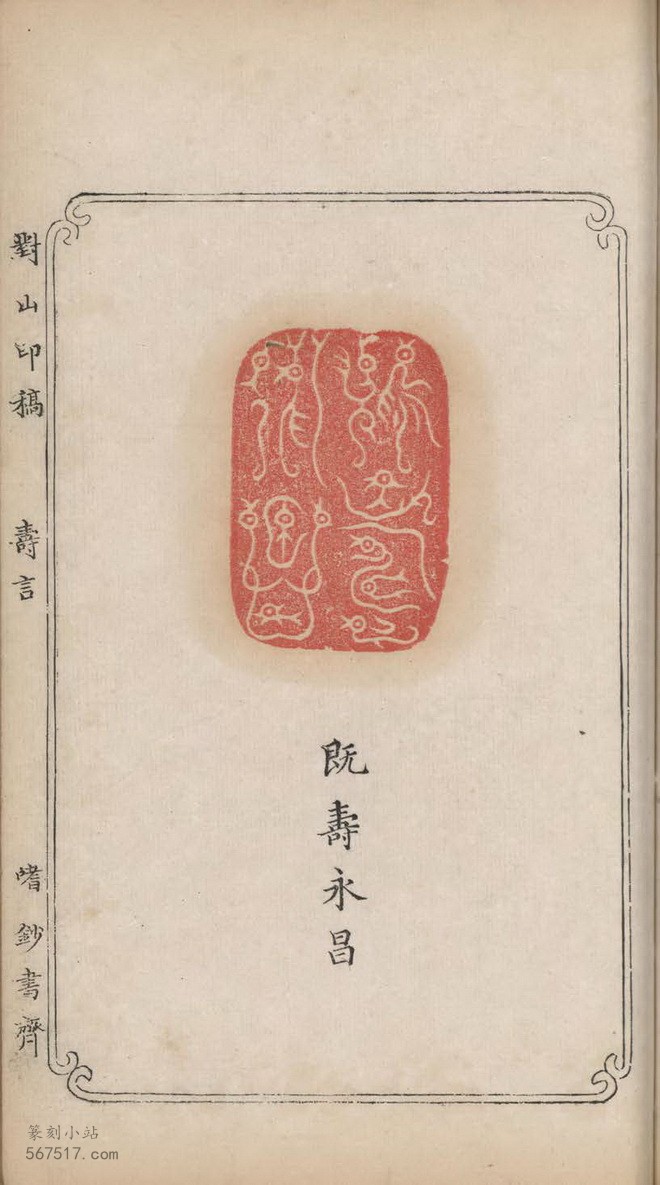 既壽永昌
對山印稿
壽言
嗜鈔書齊
篆刻小站
567517.com